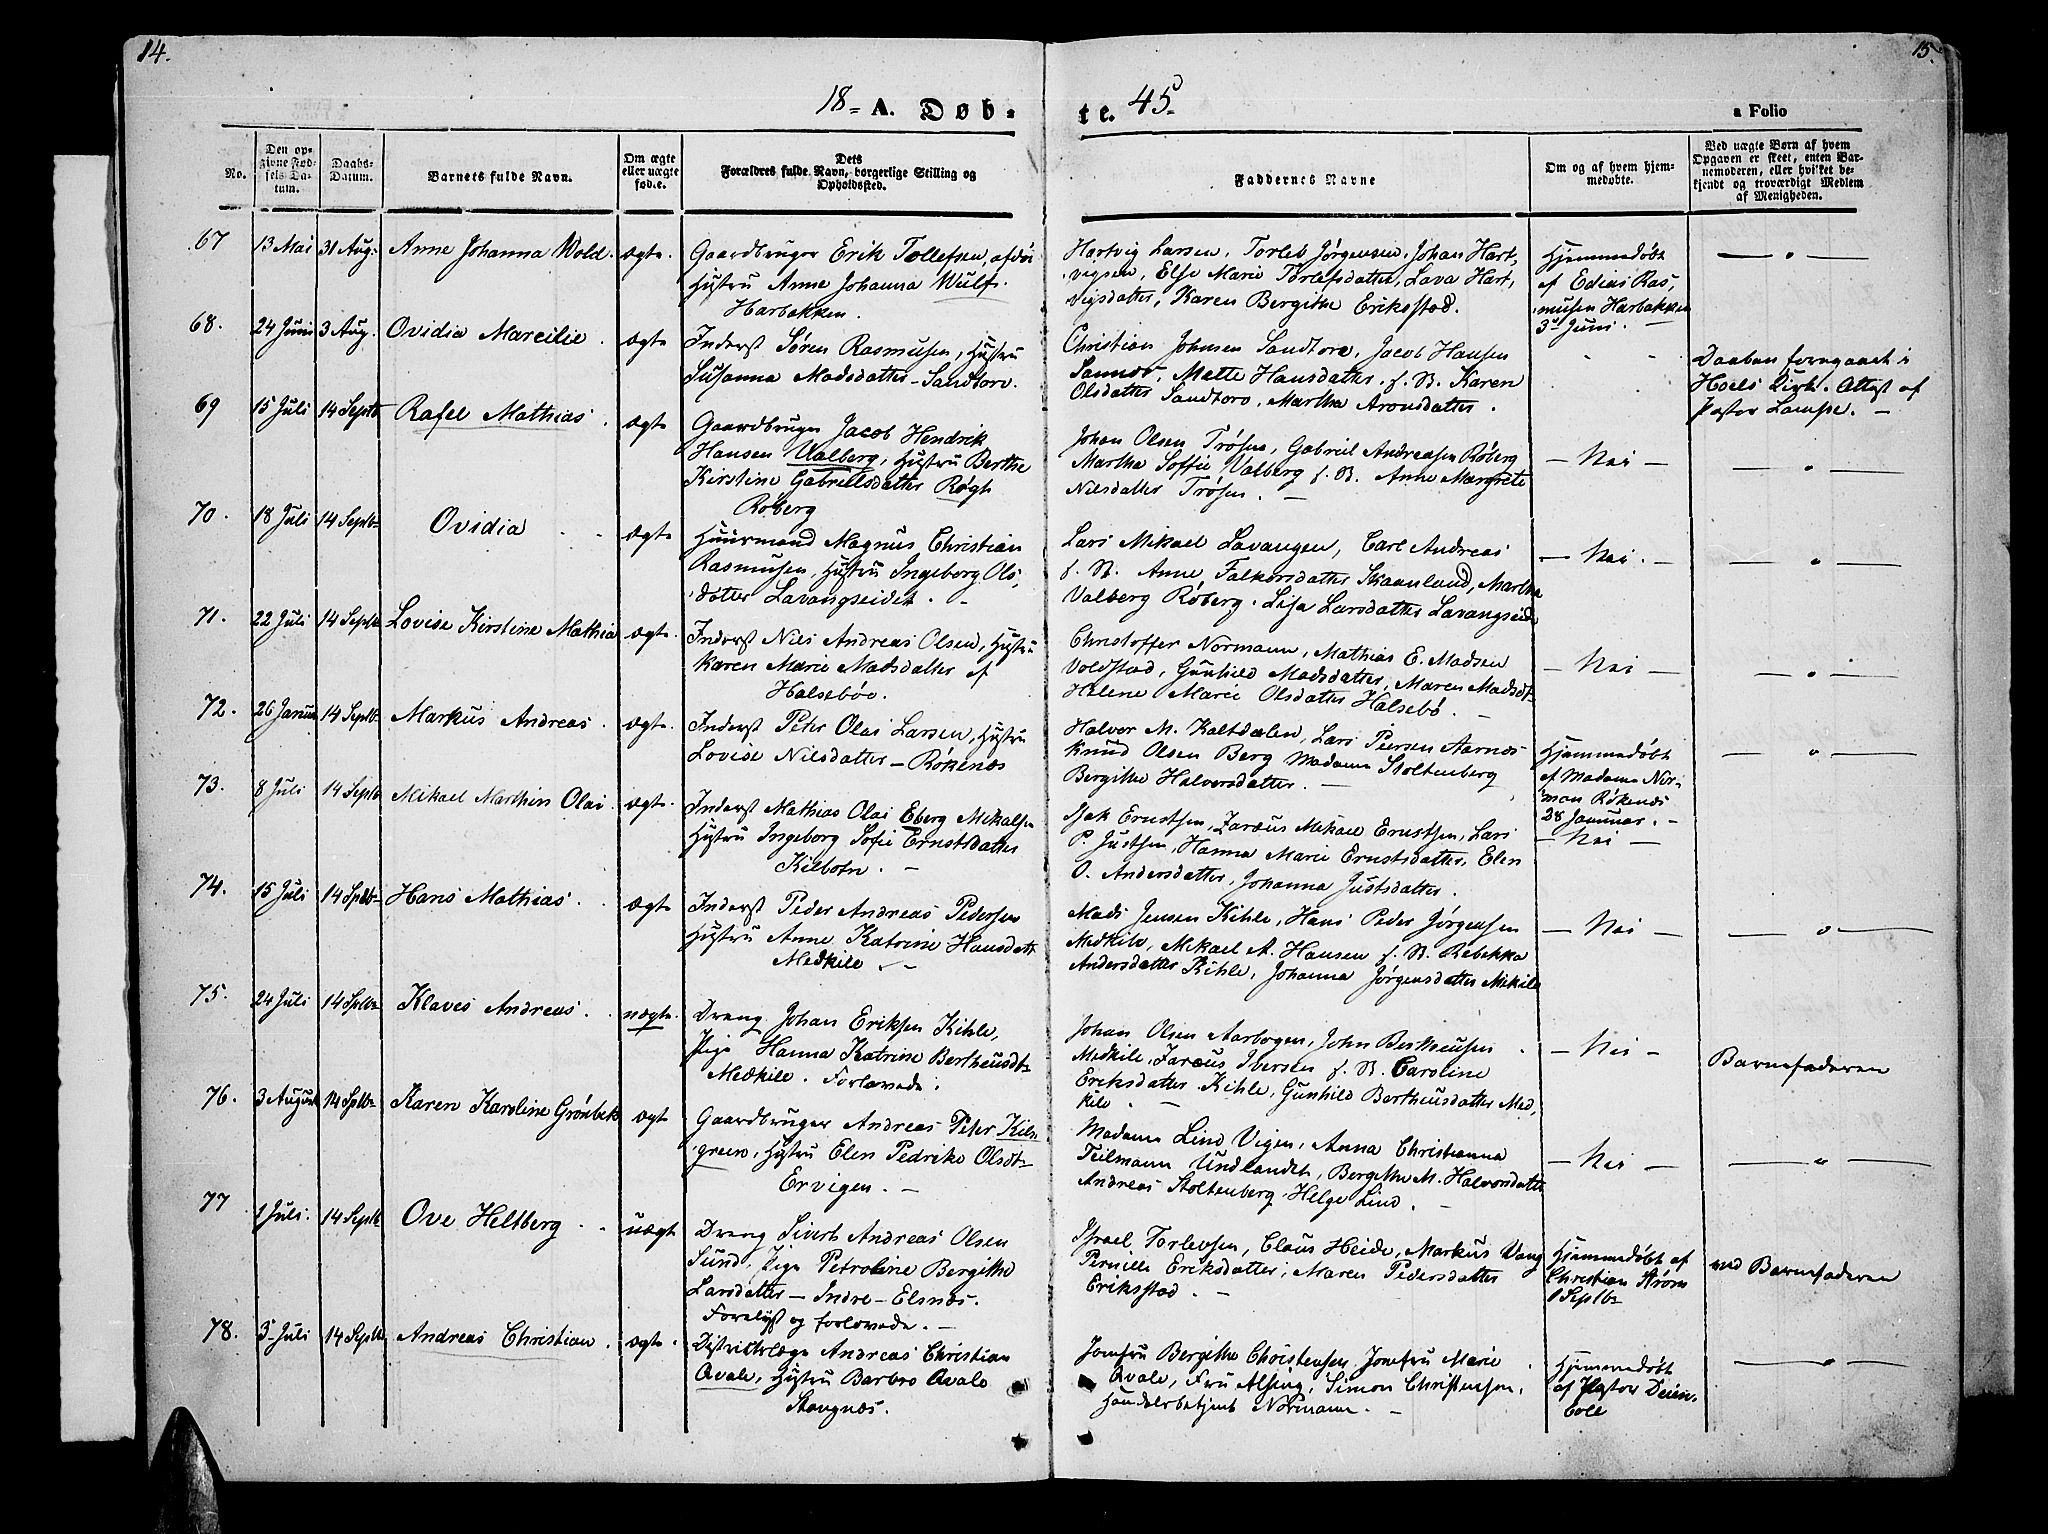 14.
15.
18- A. Døb-
te. 45-
a Folio
No.
Den op-
givne Fød-
sels Da-
tum.
Daabs-
Datum.
Barnets fulde Navn.
Om ægte
eller uægte
fød.e.
Dets
Forældres fulde Navn, borgerlige Stilling og
Opholdssted.
Faddernes Navne
Om og af hvem hjem-
medøbte.
Ved uægte Børn af hvem
Opgaven er skeet, enten Bar-
nemoderen, eller hvilket be-
kjendt og troværdigt Medlem
af Menigheden.
67
13 Mai
31 Aug.
Anne Johanna Wold.
ægte.
Gaardbruger Erik Tollefsen, afdøde
Hustru Anne Johanna Wulf.
Harbakken.
Hartvig Larsen, Torleif Jørgensen, Johan Hart,
vigsen, Else Marie Torlefsdatter, Lava Hart,
vigsdatter, Karen Bergithe Eriksstad.
Hjemmedøbt
af Edias Ras,
musen Harbakken
3d Juni. —
68.
24 Juni
3 Aug.
Ovidia Marcilie.
ægte
Inderst Søren Rasmusen, Hustru
Susanna Madsdatter - Sandtorv.
Christian Johnsen Sandtorv, Jacob Hansen
Sannes, Mette Hansdatter. f. B. Karen
Olsdatter Sandtorv, Martha Aronsdatter.
Daaben foregaaet i
Hoels Kirk. Attest af
Pastor Lampe. —
69
15 Juli
14 Septb
Rafel Mathias.
ægte
Gaardbruger Jacob Hendrik
Hansen Valberg, Hustru Berthe
Kirstine Gabrielsdatter Røgh
Røberg
Johan Olsen Trøsen, Gabriel Andreasen Røberg
Martha Soffie Valberg f. B. Anne Margrete
Nilsdatter Trøsen. —
— Nei —
70.
18 Juli
14 Septb-
Ovidia
ægte
Huusmand Magnus Christian
Rasmusen, Hustru Ingeborg Ols,
datter Lavangseidet. -
Lars Mikael Lavangen, Carl Andreas
f. B. Anne Falkorsdatter Skaanland, Martha
Valberg Røberg. Lisa Larsdatter Lavangseide
— Nei. —
71.
22 Juli
14 Septb
Lovise Kirstine Mathia
ægte.
Inderst Nils Andreas Olsen, Hustru
Karen Marie Madsdatter af
Halsebøe.
Christoffer Normann, Mathias E. Madsen
Voldstad, Gunhild Madsdatter, Maren Madsdt-
Helene Marie Olsdatter Halsebø. —
— Nei —
72.
26 Januar
14 Septb-
Markus Andreas.
ægte.
Inderst Peter Olai Larsen, Hustru
Lovise Nilsdatter - Røkenæs
Halvor M. Kaltdalen, Lars Peersen Aarnæs
Knud Olsen Berg Madame Stoltenberg
Bergithe Halversdatter. —
Hjemmedøbt
af Madame Nor-
man Røkenæs
28 Januar. -
73.
8 Juli
14 Septb
Mikael Marthin Olai.
ægte.
Inderst Mathias Olai Eberg Mikalsen
Hustru Ingeborg Sofie Ernstsdatter
Kilbotn. —
Isak Ernstsen, Zaræus Mikael Ernstsen, Lars
P. Justsen, Hanna Marie Ernstsdatter, Elen
O. Andersdatter, Johanna Justsdatter.
— Nei —
74.
15 Juli
14 Septb-
Hans Mathias.
ægte
Inderst Peder Andreas Pedersen
Hustru Anne Katrine Hansdatt
Medkile. -
Mads Jensen Kihle, Hans Peder Jørgensen
Medkile, Mekael A. Hansen f. B. Rebekka
Andersdatter Kihle, Johanna Jørgensdatter Mekile
— Nei —
75.
24 Juli
14 Septb-
Klaves Andreas.
uægte.
Dreng Johan Eriksen Kihle,
Pige Hanna Katrine Bertheusdt-
Medkile. Forlovede.
Johan Olsen Aarbogen, John Bertheusen
Medkile, Zaræus Iversen f. B. Caroline
Eriksdatter Kihle, Gunhild Bertheusdatter Med,
kile. —
— Nei -
Barnefaderen
76.
3 August
14 Septb-
Karen Karoline Grønbek
ægt
Gaardbruger Andreas Peter Kils
green, Hustru Elen Pedrike Olsdt-
Ervigen. -
Madame Lind Vigen, Anna Christianna
Teilmann Undlandet, Bergithe M. Halvorsdatter
Andreas Stoltenberg. Helge Lind. -
— Nei —
77
1 Juli.
14 Septb
Ove Heltberg.
uægt
Dreng Sivert Andreas Olsen
Sund. Pige Petroline Bergithe
Larsdatter - Indre-Elsnæs.
Forelyst og forlovede. -
Israel Torlevsen, Claus Heide, Markus Vang
Pernille Eriksdatter, Maren Pedersdatter
Eriksstad. -
Hjemmedøbt af
Christian Strøm
1 Septb-
ved Barnefaderen
78.
5 Juli
14 Septb
Andreas Christian.
ægte.
Districtslæge Andreas Christian
Qvale, Hustru Barbro Qvale
Stangnæs.
Jomfru Bergithe Christensen, Jomfru Marie
Qvale, Fru Alseng, Simon Christensen,
Handelsbetjent Normann. -
Hjemmedøbt
af Pastor Deien,
boll